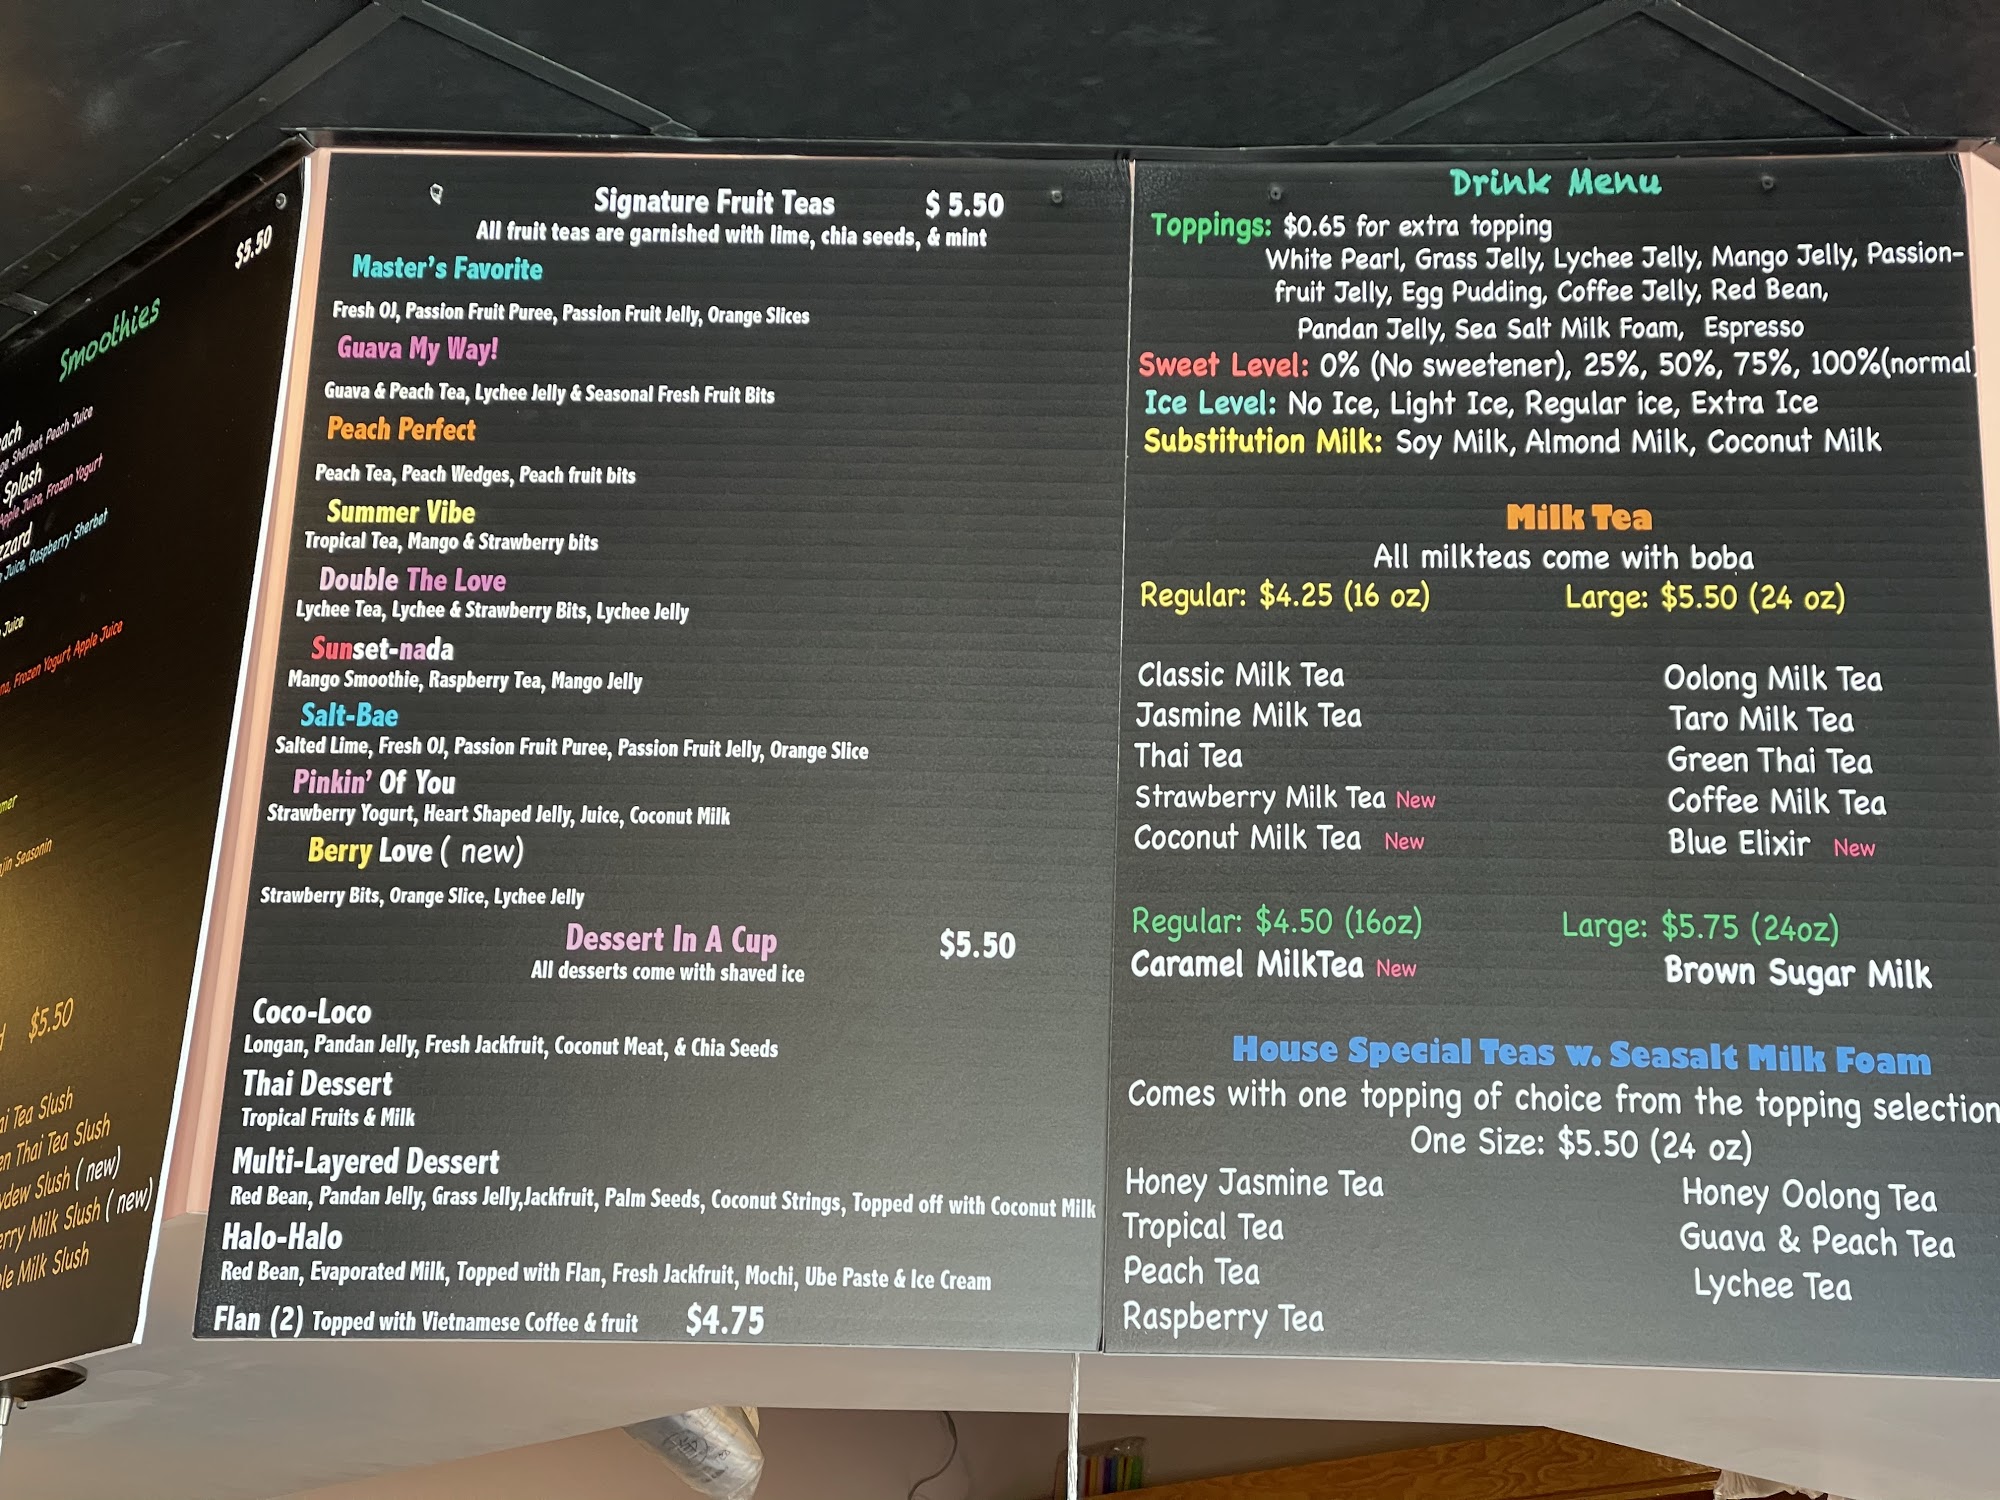 $5.50
Smoothies
Sherbet, Peach Juice
Splash
Apple Juice, Frozen Yogurt
Juice, Raspberry Sherbet
Juice
Frozen Yogurt, Apple Juice
$5.50
Tea Slush
Thai Tea Slush
Slush ( new)
Milk Slush ( new)
Milk Slush
Signature Fruit Teas $ 5.50
All fruit teas are garnished with lime, chia seeds, & mint
Master's Favorite
Fresh OJ, Passion Fruit Puree, Passion Fruit Jelly, Orange Slices
Guava My Way!
Guava & Peach Tea, Lychee Jelly & Seasonal Fresh Fruit Bits
Peach Perfect
Peach Tea, Peach Wedges, Peach fruit bits
Summer Vibe
Tropical Tea, Mango & Strawberry bits
Double The Love
Lychee Tea, Lychee & Strawberry Bits, Lychee Jelly
Sunset-nada
Mango Smoothie, Raspberry Tea, Mango Jelly
Salt-Bae
Salted Lime, Fresh OJ, Passion Fruit Puree, Passion Fruit Jelly, Orange Slice
Pinkin' Of You
Strawberry Yogurt, Heart Shaped Jelly, Juice, Coconut Milk
Berry Love ( new)
Strawberry Bits, Orange Slice, Lychee Jelly
Dessert In A Cup $5.50
All desserts come with shaved ice
Coco-Loco
Longan, Pandan Jelly, Fresh Jackfruit, Coconut Meat, & Chia Seeds
Thai Dessert
Tropical Fruits & Milk
Multi-Layered Dessert
Red Bean, Pandan Jelly, Grass Jelly,Jackfruit, Palm Seeds, Coconut Strings, Topped off with Coconut Milk
Halo-Halo
Red Bean, Evaporated Milk, Topped with Flan, Fresh Jackfruit, Mochi, Ube Paste & Ice Cream
Flan (2) Topped with Vietnamese Coffee & fruit $4.75
Drink Menu
Toppings: $0.65 for extra topping
White Pearl, Grass Jelly, Lychee Jelly, Mango Jelly, Passion-
fruit Jelly, Egg Pudding, Coffee Jelly, Red Bean,
Pandan Jelly, Sea Salt Milk Foam, Espresso
Sweet Level: 0% (No sweetener), 25%, 50%, 75%, 100%(normal)
Ice Level: No Ice, Light Ice, Regular ice, Extra Ice
Substitution Milk: Soy Milk, Almond Milk, Coconut Milk
Milk Tea
All milkteas come with boba
Regular: $4.25 (16 oz) Large: $5.50 (24 oz)
Classic Milk Tea Oolong Milk Tea
Jasmine Milk Tea Taro Milk Tea
Thai Tea Green Thai Tea
Strawberry Milk Tea New Coffee Milk Tea
Coconut Milk Tea New Blue Elixir New
Regular: $4.50 (16oz) Large: $5.75 (24oz)
Caramel MilkTea New Brown Sugar Milk
House Special Teas w. Seasalt Milk Foam
Comes with one topping of choice from the topping selection
One Size: $5.50 (24 oz)
Honey Jasmine Tea Honey Oolong Tea
Tropical Tea Guava & Peach Tea
Peach Tea Lychee Tea
Raspberry Tea